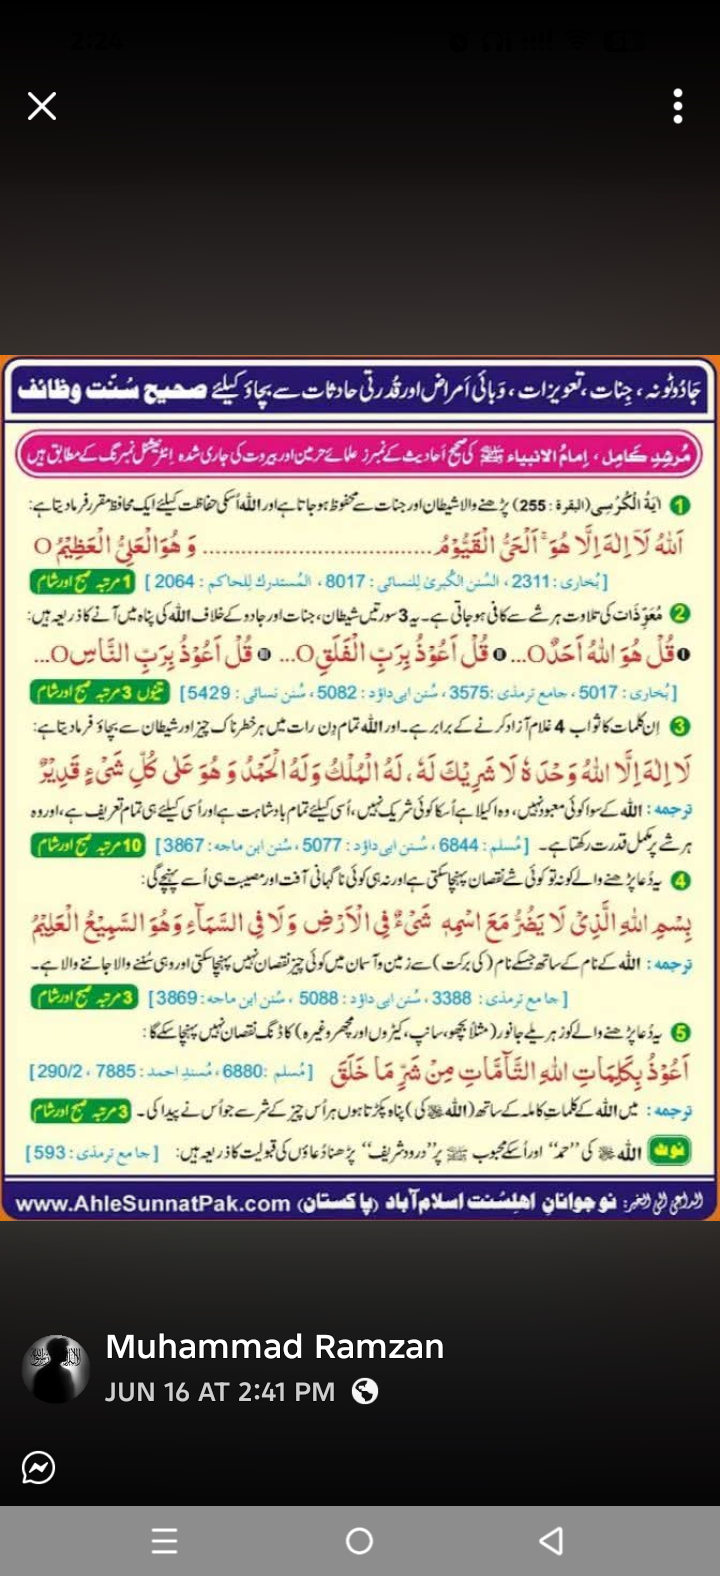 2:24
جادُو ٹونہ ، جِنات ، تعویزات ، وَبائی اَمراض اور قُدرتی حادثات سے بچاؤ کیلئے صحیح سُنّت وظائف
مُرشدِ کامِل ، اِمامُ الانبیاء ﷺ کی صحیح اَحادیث کے نمبرز علمائے حرمین اور بیروت کی جاری شدہ اِنٹرنیشنل نمبرنگ کے مطابق ہیں
1 اٰیَۃُ الْکُرْسِی (البقرۃ : 255) پڑھنے والا شیطان اور جنات سے محفوظ ہو جاتا ہے اور اللہ اُسکی حفاظت کیلئے ایک محافظ مقرر فرما دیتا ہے:
اَللّٰهُ لَآ اِلٰهَ اِلَّا هُوَ ۚ اَلْحَیُّ الْقَیُّوْمُ ............................... وَ هُوَ الْعَلِیُّ الْعَظِیْمُ O
[بُخاری : 2311 ، السُنن الکُبریٰ لِلنسائی : 8017 ، المُستدرك لِلحاكم : 2064 ] 1 مرتبہ صبح اور شام
2 مُعَوِّذَات کی تلاوت ہر شے سے کافی ہو جاتی ہے۔ یہ 3 سورتیں شیطان، جنات اور جادو کے خلاف اللہ کی پناہ میں آنے کا ذریعہ ہیں:
I قُلْ هُوَ اللّٰهُ اَحَدٌO... II قُلْ اَعُوْذُ بِرَبِّ الْفَلَقِO... III قُلْ اَعُوْذُ بِرَبِّ النَّاسِO...
[بُخاری : 5017 ، جامع ترمذی :3575 ، سُنن ابی داؤد : 5082 ، سُنن نسائی : 5429] تینوں 3 مرتبہ صبح اور شام
3 اِن کلمات کا ثواب 4 غلام آزاد کرنے کے برابر ہے۔ اور اللہ تمام دِن رات میں ہر خطرناک چیز اور شیطان سے بچاؤ فرما دیتا ہے:
لَا اِلٰهَ اِلَّا اللّٰهُ وَحْدَهٗ لَا شَرِيْكَ لَهٗ ، لَهُ الْمُلْكُ وَلَهُ الْحَمْدُ وَ هُوَ عَلٰی كُلِّ شَیْءٍ قَدِيْرٌ
ترجمہ : اللہ کے سوا کوئی معبود نہیں، وہ اکیلا ہے اُسکا کوئی شریک نہیں، اُسی کیلئے تمام بادشاہت ہے اور اُسی کیلئے ہی تمام تعریف ہے، اور وہ
ہر شے پر مکمل قدرت رکھتا ہے۔ [مُسلم : 6844 ، سُنن ابی داؤد : 5077 ، سُنن ابن ماجه : 3867] 10 مرتبہ صبح اور شام
4 یہ دُعا پڑھنے والے کو نہ تو کوئی شے نقصان پہنچا سکتی ہے اور نہ ہی کوئی ناگہانی آفت اور مصیبت ہی اُسے پہنچے گی:
بِسْمِ اللّٰهِ الَّذِیْ لَا يَضُرُّ مَعَ اسْمِهٖ شَیْءٌ فِی الْاَرْضِ وَلَا فِی السَّمَآءِ وَهُوَ السَّمِيْعُ الْعَلِيْمُ
ترجمہ : اللہ کے نام کے ساتھ جسکے نام (کی برکت) سے زمین و آسمان میں کوئی چیز نقصان نہیں پہنچا سکتی اور وہی سُننے والا جاننے والا ہے۔
[جامع ترمذی : 3388 ، سُنن ابی داؤد : 5088 ، سُنن ابن ماجه : 3869] 3 مرتبہ صبح اور شام
5 یہ دُعا پڑھنے والے کو زہریلے جانور (مثلاً بچھو، سانپ، کیڑوں اور مچھر وغیرہ) کا ڈنگ نقصان نہیں پہنچا سکے گا :
اَعُوْذُ بِكَلِمَاتِ اللّٰهِ التَّآمَّاتِ مِنْ شَرِّ مَا خَلَقَ [مُسلم :6880 ، مُسندِ احمد : 7885 ، 290/2]
ترجمہ : میں اللہ کے کلماتِ کاملہ کے ساتھ (اللہ ﷻ کی) پناہ پکڑتا ہوں ہر اُس چیز کے شر سے جو اُس نے پیدا کی۔ 3 مرتبہ صبح اور شام
نوٹ اللہ ﷻ کی "حمد" اور اُسکے محبوب ﷺ پر "درود شریف" پڑھنا دُعاؤں کی قبولیت کا ذریعہ ہیں: [جامع ترمذی : 593]
الداعی الی الخیر: نوجوانانِ اهلِسُنت اسلام آباد (پاکستان) www.AhleSunnatPak.com
Muhammad Ramzan
JUN 16 AT 2:41 PM